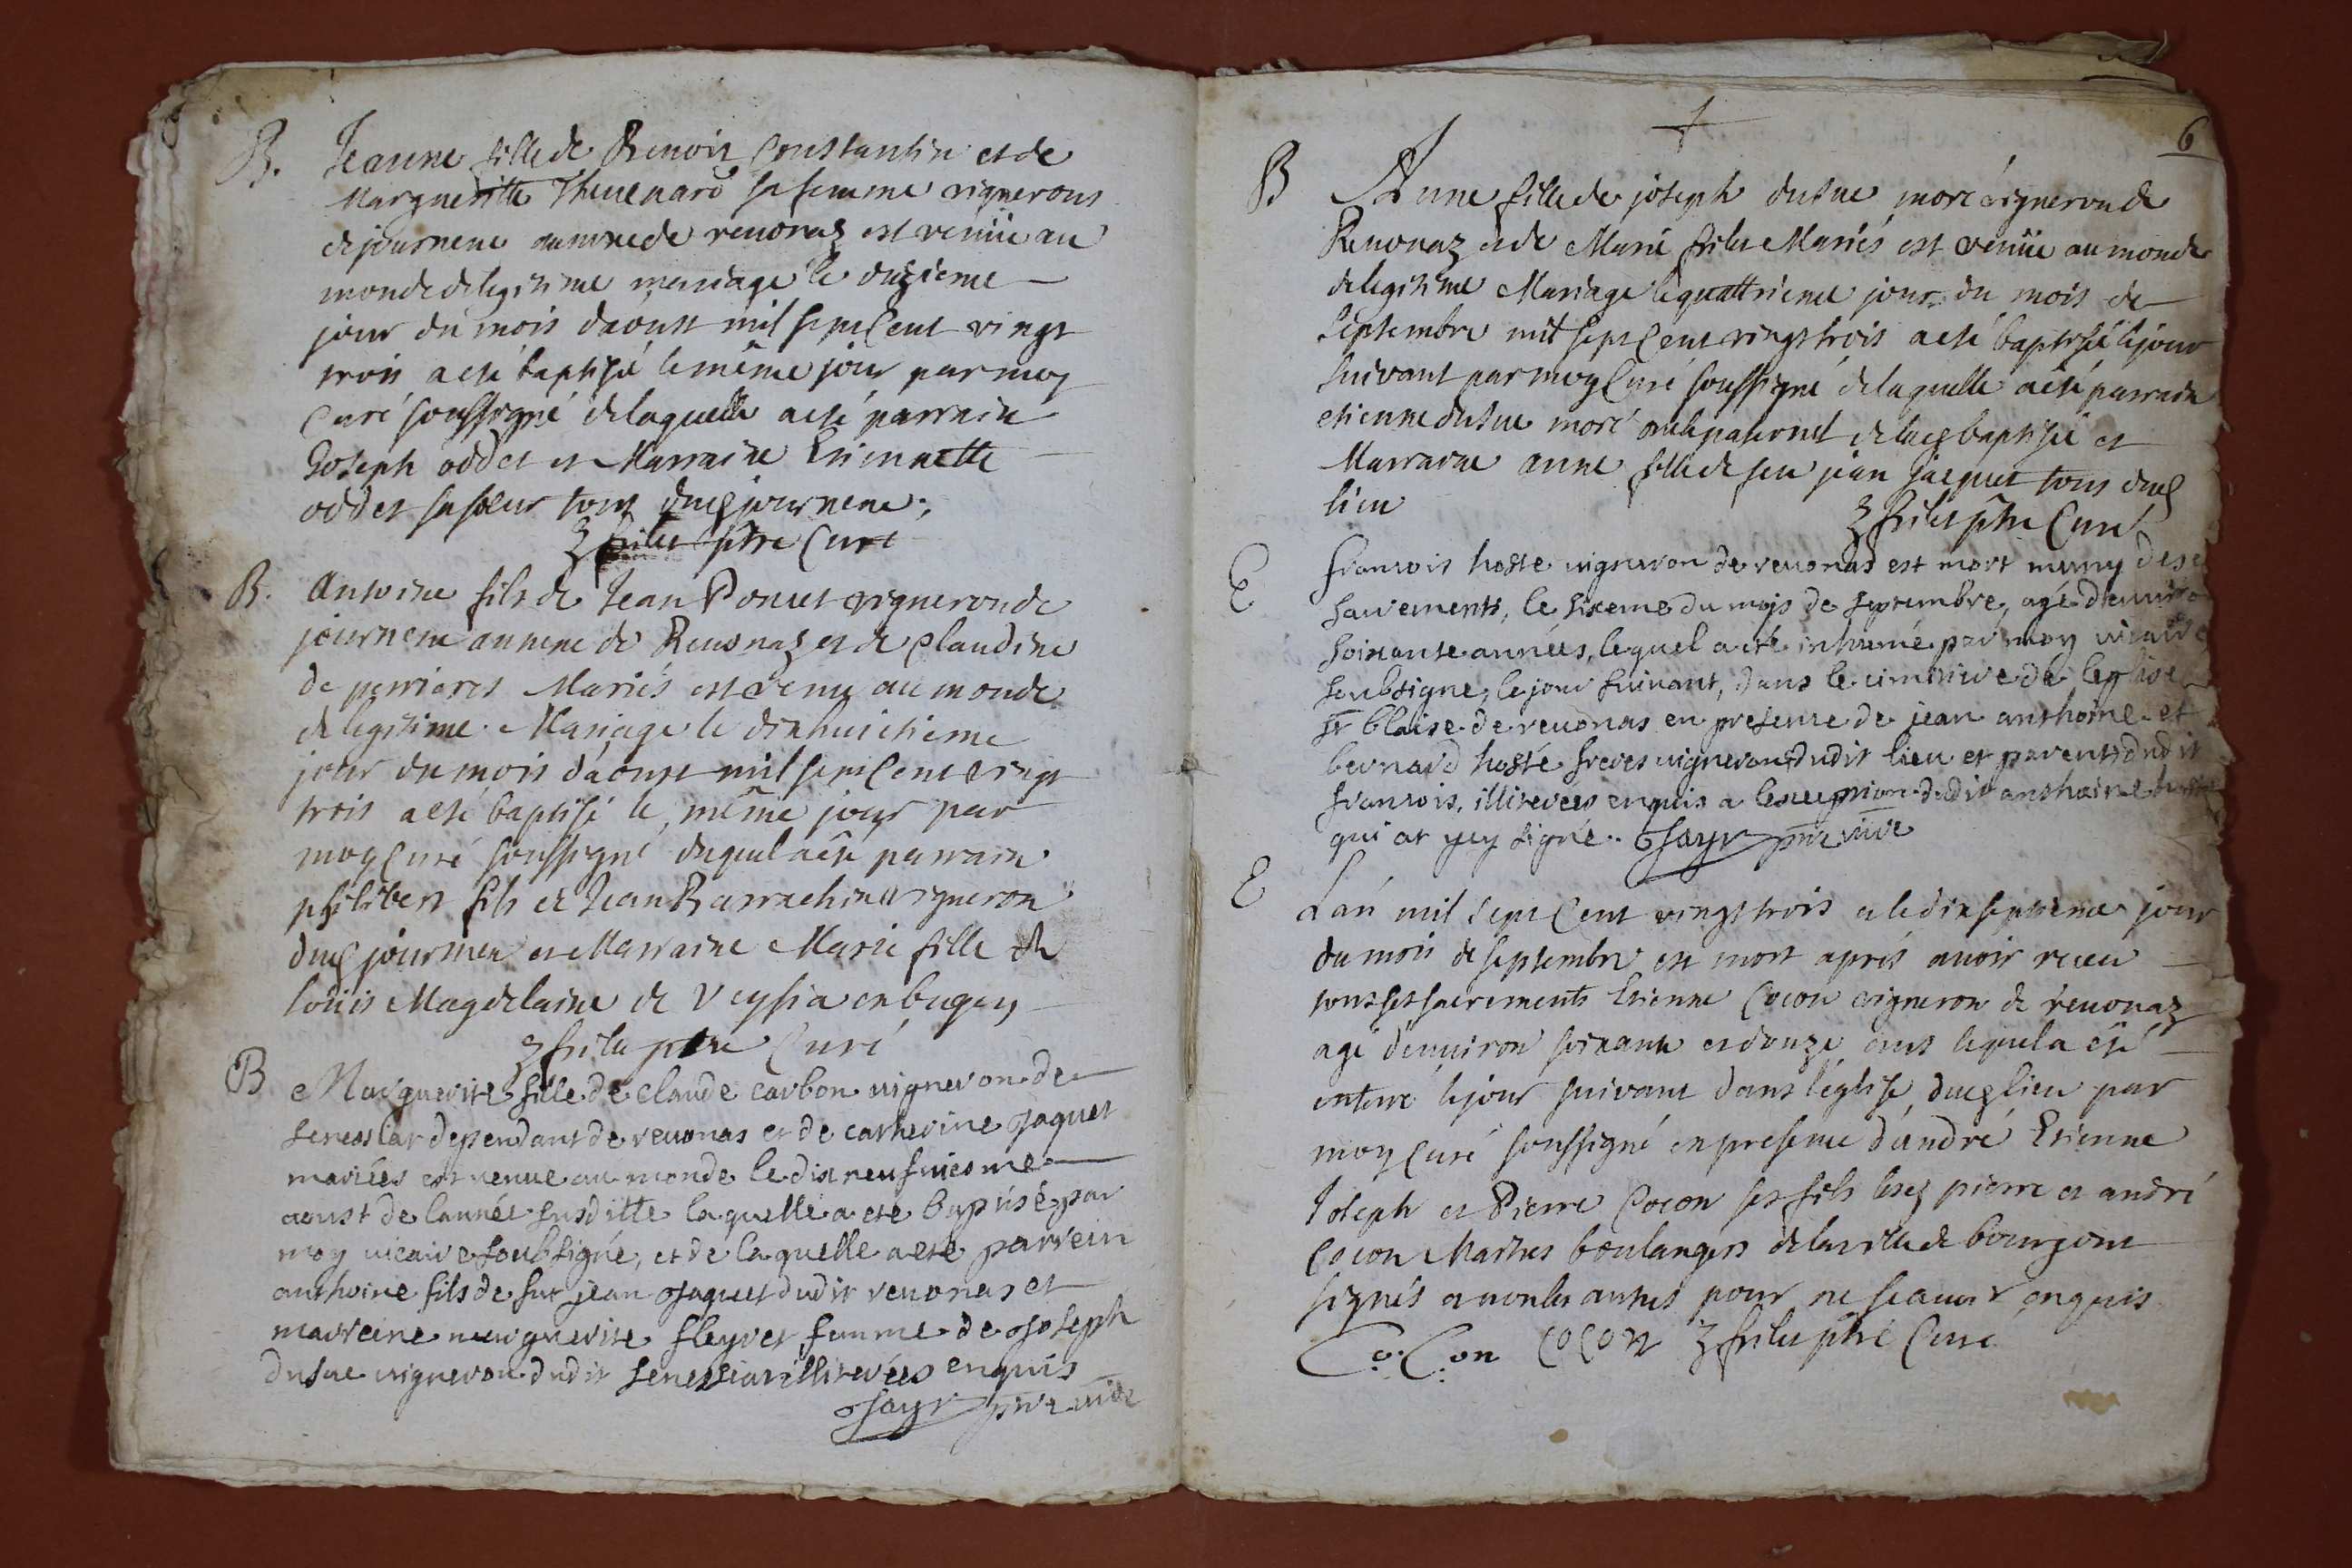 B. Jeanne fille de Benoit Constantin et de
Margueritte Thevenard sa femme vignerons
de journene annexe de revonaz est venüe au
monde de legitime mariage le onzieme
jour du mois daoust mil sept Cent vingt
trois a esté baptisé le même jour par moy
Curé soussigné de laquelle a esté parrain
Joseph oddet et Marraine Estiennette
oddet sa soeur tous dud journene;
frilet ptre Curé
B. Antoine fils de Jean Poncet vigneron de
journene annexe de Revonaz et de Claudine
de perrieres Mariés est venu au monde
de legitime Mariage le dixhuitieme
jour du mois d'aoust mil sept Cent vingt
trois a esté baptisé le même jour par
moy Curé soussigné duquel a esté parrain
philibert fils de Jean Barrachin vigneron
dud journen et Marraine Marie fille de
loüis Magdelaine de Veyssia en bugey
frilet ptre Curé
B Marguerite fille de claude carbon vigneron de
senessiar dependant de revonas et de catherine Jaquet
mariées est venue au monde le dix neufviesme
aoust de lannée susditte laquelle a ete baptisé par
moy vicaire soubsigné, et de laquelle a ete parrein
anthoine fils de fut jean Jaquet dudit revonas et
marreine marguerite fleyret femme de Joseph
dusue vigneron dudit senessiar illiterées enquis
Jayr ptre vicre
6
B Anne fille de joseph dusue moré vigneron de
Revonaz et de Marie frilet Mariés est venüe au monde
de legitime Mariage le quattrieme jour du mois de
Septembre mil sept Cent vingt trois a esté baptisé le jour
suivant par moy Curé soussigné de laquelle a esté parrain
etienne dusue moré oncle paternel de lad baptisée et
Marraine anne fille de feu jean jacquet tous dud
lieu
frilet ptre Curé
E francois hoste vigneron de revonas est mort muny des
sacrements, le sixeme du mois de septembre, agé d'environ
soixante années, lequel a ete inhumé par moy vicaire
soubsigne, le jour suivant, dans le cimetiere de leglise
st blaise de revonas en presence de jean anthoine et
bernard hosté freres vignerons dudit lieu et parents dudit
francois, illiterées enquis a lexception dudit anthoine hoste
qui at icy signé. Jayr ptre vicre
E Lan mil sept Cent vingt trois et le dix septieme jour
du mois de septembre est mort aprés avoir receu
tous ses sacrements Etienne Cocon vigneron de revonaz
agé d'environ soixante et douze ans lequel a esté
enterré le jour suivant dans l'église dud lieu par
moy Curé soussigné en presence d'andré Etienne
Joseph et Pierre Cocon ses fils lesq pierre et andré
Cocon Maitres boulangers de la ville de bourg ont
signés et non les autres pour ne scavoir enquis
Co. Con COCON frilet ptre Curé